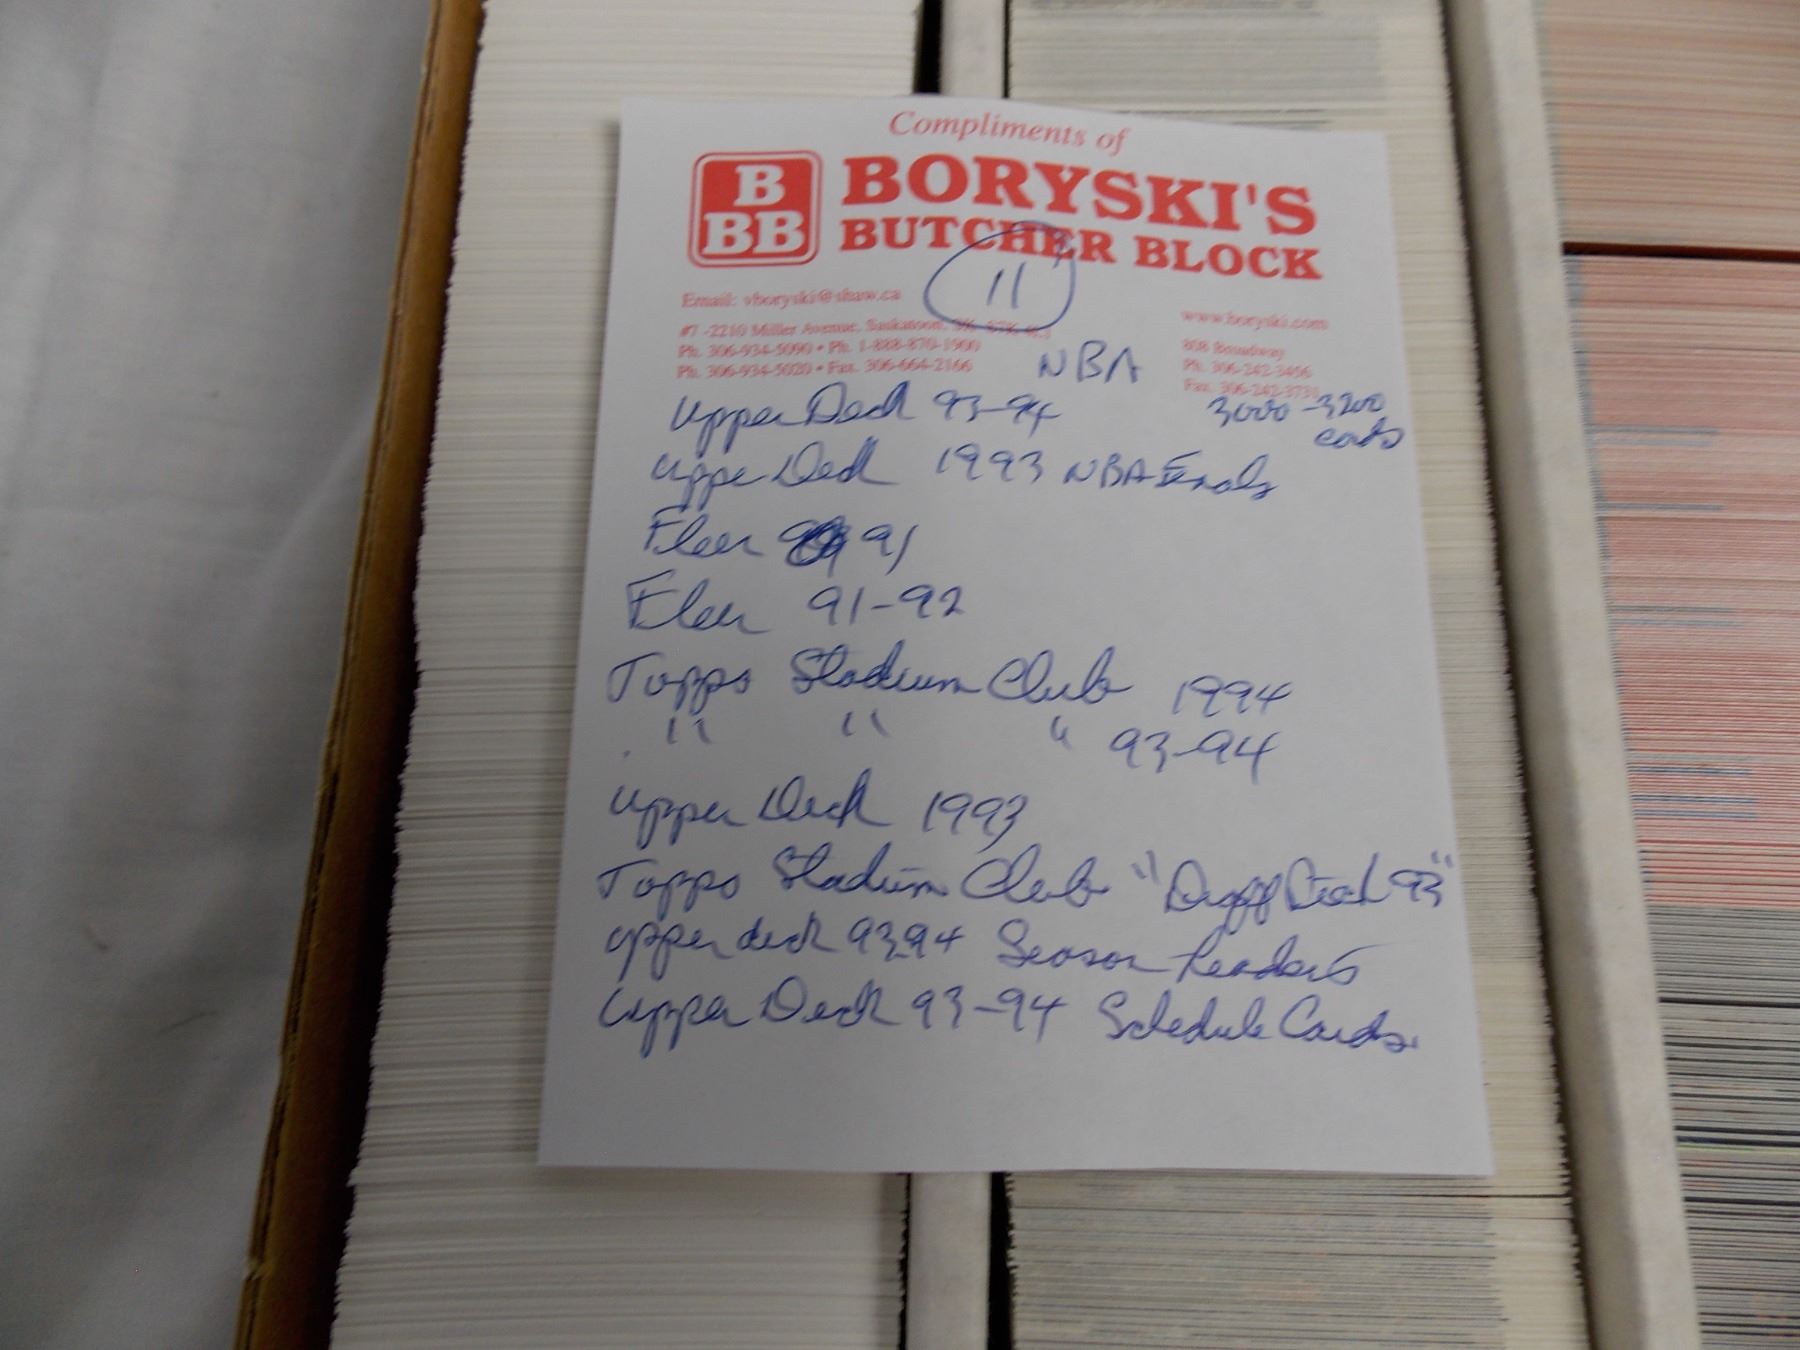 Compliments of
B
BBB
BORYSKI'S
BUTCHER BLOCK
11
Email: vboryski@shaw.ca
www.boryski.com
#7 -2210 Miller Avenue, Saskatoon, SK
Ph. 306-934-5090 • Ph. 1-888-870-1900
Ph. 306-934-5020 • Fax. 306-664-2166
808 Broadway
Ph. 306-242-3456
Fax. 306-242-3731
NBA
3000-3200
cards
Upper Deck 93-94
Upper Deck 1993 NBA Finals
Fleer 91
Fleer 91-92
Topps Stadium Club 1994
" " " 93-94
Upper Deck 1993
Topps Stadium Club " 93"
upper deck 93 94 Season Leaders
Upper Deck 93-94 Schedule Cards.